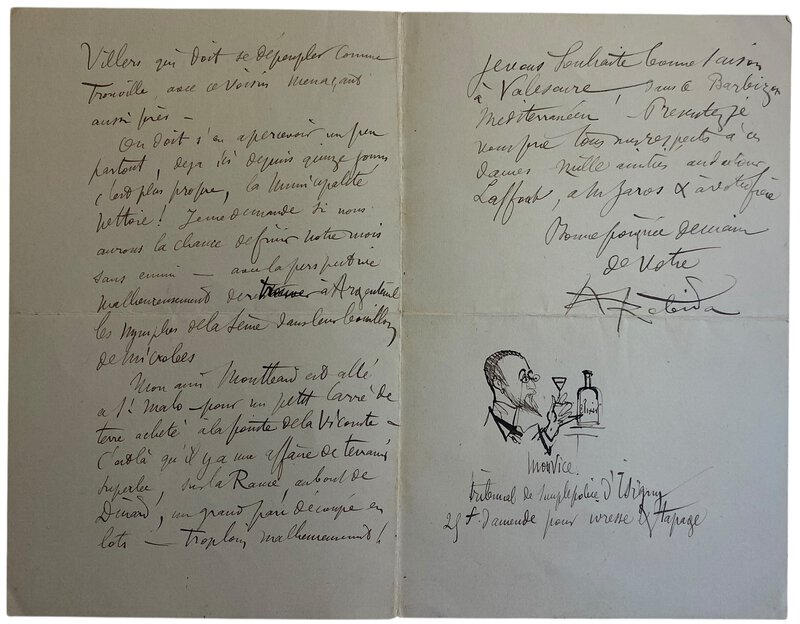 Villers qui doit se dépeupler comme
Trouville, avec ce voisin menaçant
aussi près —
On doit s'en apercevoir un peu
partout, déjà ici depuis quinze jours
c'est plus propre, la municipalité
nettoie! Je me demande si nous
aurons la chance de finir notre mois
sans ennui — avec la perspective
malheureusement de retrouver à Argenteuil
les nymphes de la Seine dans leur bouillon
de microbes
Mon ami est allé
à St Malo — pour un petit carré de
terre acheté à la pointe de la Vicomté —
C'est là qu'il y a une affaire de terrains
superbe, sur la Rance au bout de
Dinard, un grand parc découpé en
lots — trop loin malheureusement!
Je vous souhaite bonne saison
à Valescure, dans ce Barbizon
Méditerranéen! Présentez je
vous prie tous mes respects à ces
dames mille amitiés au docteur
à Mr & à votre frère
Bonne poignée de main
de votre
A Robida
Elixir
Mon Vice.
tribunal de simple police d'Isigny
25 f. d'amende pour ivresse & tapage